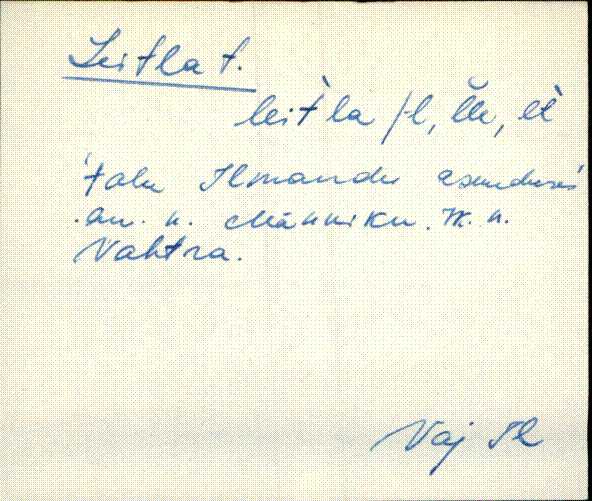 Leitla t.
leit̀la /-l, l̆le, lt̀
talu Ilmandu asunduses
an. n. Männiku. Tk. n.
Vahtra.
Vaj Il